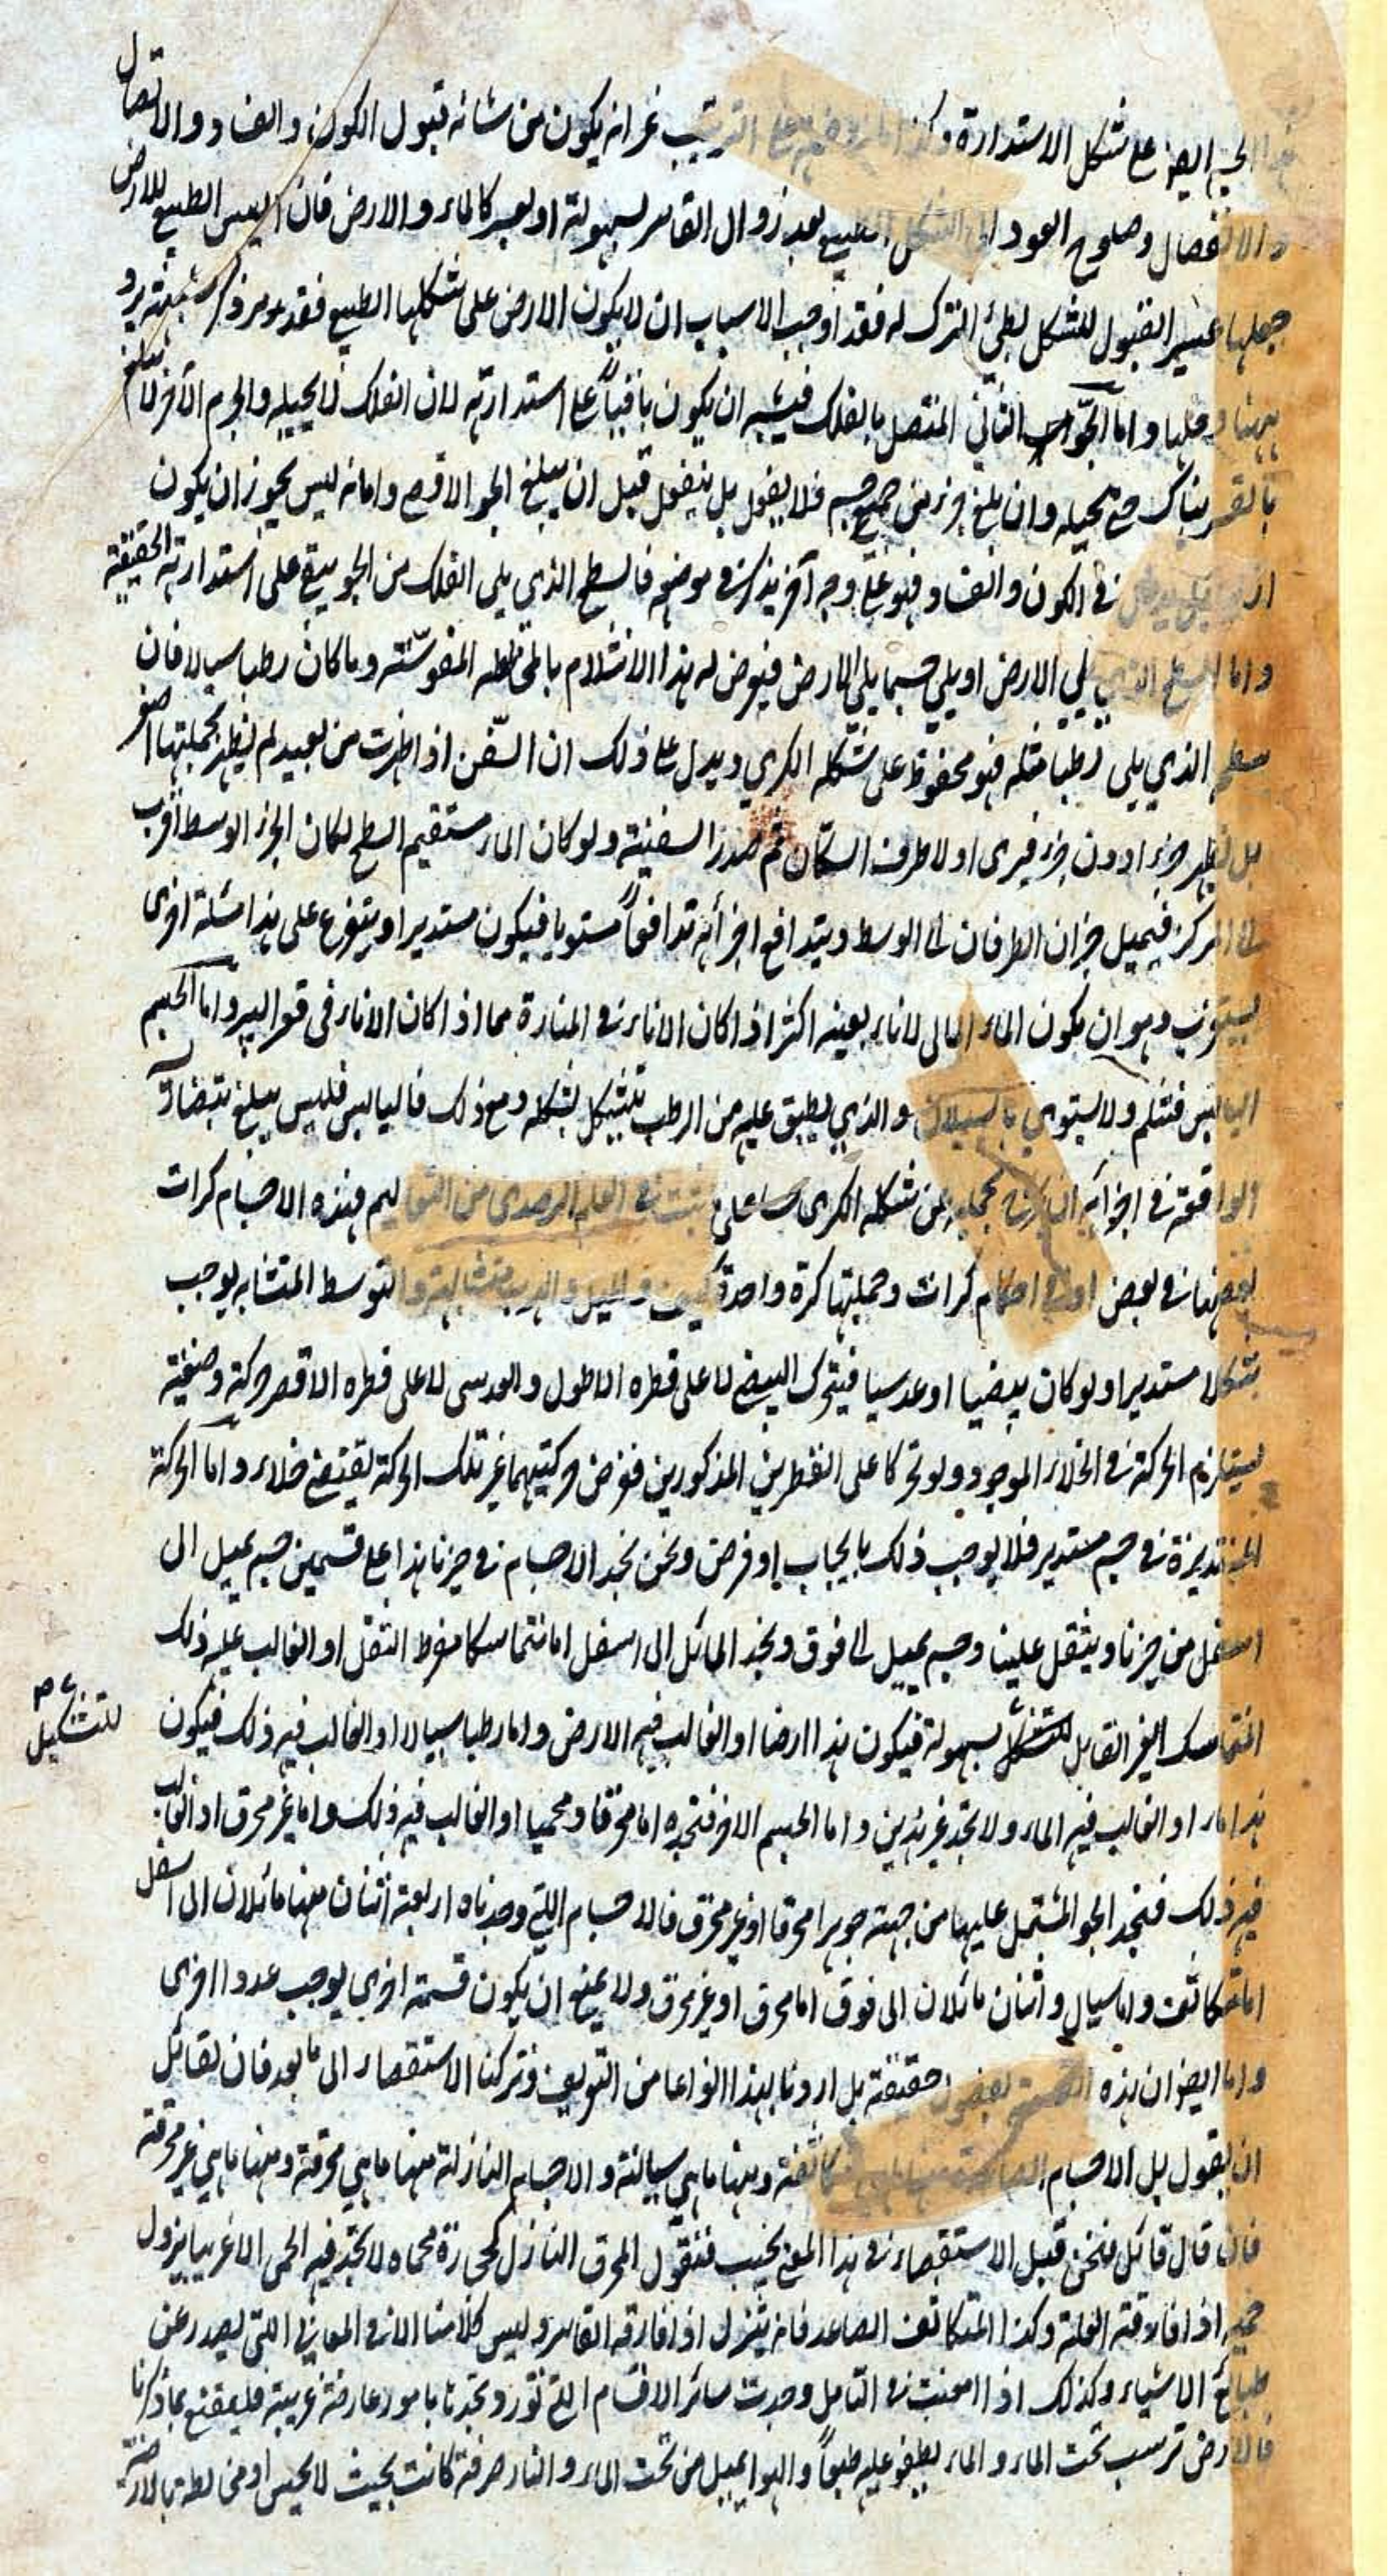 الحيز ايضا على شكل الاستدارة وكذا ما على الترتيب غير انه يكون من شانه قبول الكون والفساد والاتصال
والانفصال وصلوح العود الى الشكل الطبيعي بعد زوال القاسر بسهولة او بعسر كالماء والارض فان اليبس الطبيعي للارض
جعلها عسير القبول للشكل بطئ الترك له فقد اوجب الاسباب ان لا يكون الارض على شكلها الطبيعي فقد
واما الجواب الثاني المتصل بالفلك فيشبه ان يكون باقيا على استدارته لان الفلك لا يحيله والجرم الآخر لا يبلغ
بالقسر هناك حتى يحيله وان بلغ جزء من جسم فلا يفعل بل ينفعل قبل ان يبلغ الجو الاقصى واما انه ليس يجوز ان يكون
في الكون والفساد فهو على وجه آخر يذكر في موضعه فالسطح الذي يلي الفلك من الجو يبقى على استدارته الحقيقية
واما السطح الذي يلي الارض او يلي جسما يلي الارض فيعرض له هذا الانثلام بالمخالطة المغوشة وما كان رطبا سيالا فان
سطحه الذي يلي رطبا مثله فهو محفوظ على شكله الكري ويدل على ذلك ان السفن اذا ظهرت من بعيد لم يظهر بجملتها اصغر
بل يظهر جزءا دون جزء فيرى اولا طرف السكان ثم صدر السفينة ولو كان الماء مستقيم السطح لكان الجزء الوسط اقرب
الى المركز فيميل جزءان الطرفان الى الوسط ويتدافع اجزائه تدافعا مستويا فيكون مستديرا ويتفرع على هذا مسئلة اخرى
يستغرب وهو ان يكون الماء المالى لاناء بعينه اكثر اذا كان الاناء في المنارة مما اذا كان الاناء في قعر البير واما الجسم
اليابس فتثلم ولا يستوي بالسيلان والذي يطبق عليه من الرطب يتشكل بشكله ومع ذلك فاليابس فليس يبلغ
الواقعة في اجزائه ان يخرج بجملته عن شكله الكرى على ثبت في العلم الرصدى من التعاليم فهذه الاجسام كرات
بعضها في بعض او في احكام كرات وجملتها كرة واحدة كيف والميل والهرب متشابه والتوسط المتشابه يوجب
شكلا مستديرا ولو كان بيضيا او عدسيا فيتحرك البيضي لا على قطره الاطول والعدسي لا على قطره الاقصر حركة وضعية
يستلزم الحركة في الخلاء الموجود ولو تحركا على القطرين المذكورين ففرض حركتيهما غير تلك الحركة يقتضي خلاء واما الحركة
المستديرة في جسم مستدير فلا يوجب ذلك بايجاب او فرض ونحن نجد الاجسام في حيزنا هذا على قسمين جسم يميل الى
اسفل من حيزنا ويثقل علينا وجسم يميل الى فوق ونجد المائل الى اسفل اما متماسكا مفرط الثقل او الغالب عليه ذلك
المتماسك الغير القابل للتشكل بسهولة فيكون هذا ارضا او الغالب فيه الارض واما رطبا سيالا او الغالب فيه ذلك فيكون
للتشكيل
هذا ماء او الغالب فيه الماء ولا نجد غير هذين واما الجسم الآخر فنجده اما محرقا ومحميا او الغالب فيه ذلك واما غير محرق او الغالب
فيه ذلك فنجد الجو المشتمل عليها من جهته جوهرا محرقا او غير محرق فالاجسام التي وجدناه اربعة اثنان منها مائلان الى اسفل
اما متكاثف واما سيال واثنان مائلان الى فوق اما محرق او غير محرق ولا يمنع ان يكون قسمة اخرى يوجب عددا اخرى
واما ايضا ان هذه القسمة بفصول حقيقة بل اردنا بهذا انواعا من التعريف وتركنا الاستقصاء الى ما بعد فان لقائل
ان يقول بل الاجسام الصاعدة منها متكاثفة ومنها ما هي سيالة والاجسام النازلة منها ما هي محرقة ومنها ما هي غير محرقة
فان قال قائل فنحن قبل الاستقصاء في هذا المعنى نجيب فنقول المحرق النازل كحجارة محماه لا نجد فيه الحمى الا غريبا يزول
اذا فارقته العلة وكذا المتكاثف الصاعد فانه ينزل اذا فارقه القاسر وليس كلامنا الان في المعاني التي يصدر عن
طبائع الاشياء وكذلك اذا امعنت في التامل وجدت سائر الاقسام التي تورد ونجدنا بامور عارضة غريبة فليقنع بما ذكرنا
فالارض ترسب تحت الماء والماء يطفو عليه طبعا والهوا يميل من تحت الماء والنار صرفة كانت بحيث لا يحس او مخالطة بالارضية